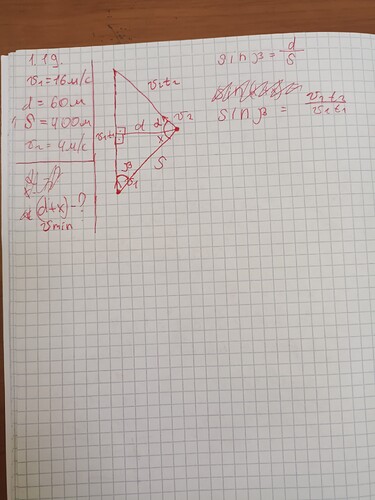 1.19.
v1=16м/с
d=60м
S=400м
v2=4м/с
(α+x)-?
vmin
v2t2
v1t1
d
α
v2
x
S
β
v1
sin β = d/S
sin β = v2t2/v1t1